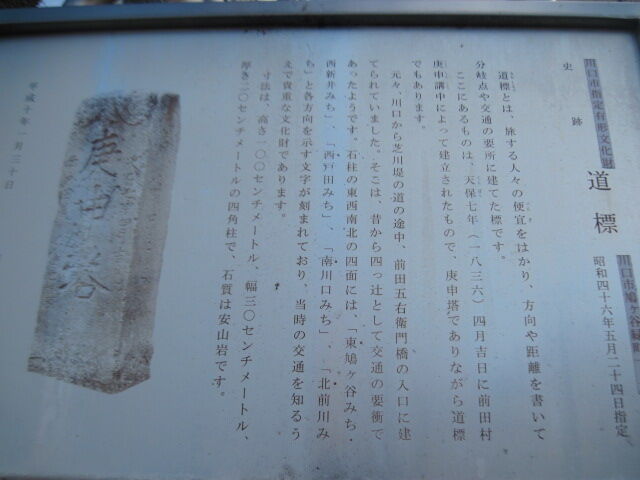 川口市指定有形文化財
史跡
道標
川口市鳩ヶ谷
昭和四十六年五月二十四日指定
道標とは、旅する人々の便宜をはかり、方向や距離を書いて
分岐点や交通の要所に建てた標です。
ここにあるものは、天保七年(一八三六)四月吉日に前田村
庚申講中によって建立されたもので、庚申塔でありながら道標
でもあります。
元々、川口から芝川堤の道の途中、前田五右衛門橋の入口に建
てられていました。そこは、昔から四っ辻として交通の要衝で
あったようです。石柱の東西南北の四面には、「東鳩ヶ谷みち・
西新井みち」、「西戸田みち」、「南川口みち」、「北前川み
ち」と各方向を示す文字が刻まれており、当時の交通を知るう
えで貴重な文化財であります。
寸法は、高さ一〇〇センチメートル、幅三〇センチメートル、
厚さ二〇センチメートルの四角柱で、石質は安山岩です。
平成十年一月三十日
庚申塔